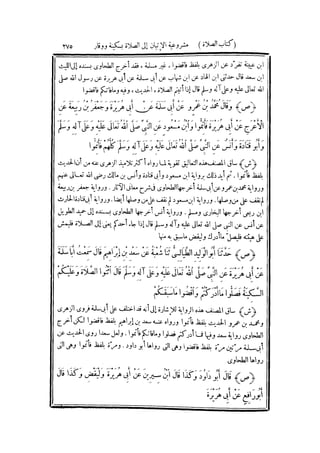 ( كتاب الصلاة ) مشروعية الإتيان إلى الصلاة بسكينة ووقار ٢٧٥
ابن عيينة تفرّد عن الزهرى بلفظ فاقضوا . غير مسلمة ، فقد أخرج الطحاوى بسنده إلى الليث
ابن سعد قال حدثنى ابن الهاد عن ابن شهاب عن أبى سلمة عن أبى هريرة عن رسول الله صلى
الله تعالى عليه وعلى آله وسلم قال إذا أتيتم الصلاة ، الحديث ، وفيه وما فاتكم فاقضوا
﴿ص﴾ وَقَالَ مُحَمَّدُ بْنُ عَمْرٍو عَنْ أَبِى سَلَمَةَ عَنْ أَبِى هُرَيْرَةَ وَجَعْفَرُ بْنُ رَبِيعَةَ عَنِ
الْأَعْرَجِ عَنْ أَبِى هُرَيْرَةَ فَأَتِمُّوا وَابْنُ مَسْعُودٍ عَنِ النَّبِىِّ صَلَّى اللهُ تَعَالَى عَلَيْهِ وَعَلَى آلِهِ وَسَلَّمَ
وَأَبُو قَتَادَةَ وَأَنَسٌ عَنِ النَّبِىِّ صَلَّى اللهُ تَعَالَى عَلَيْهِ وَعَلَى آلِهِ وَسَلَّمَ كُلُّهُمْ فَأَتِمُّوا
﴿ش﴾ ساق المصنف هذه التعاليق تقوية لما رواه أكثر تلاميذ الزهرى عنه من أن الحديث
بلفظ فأتموا . ثم أيد ذلك برواية ابن مسعود وأبى قتادة وأنس بن مالك رضى الله تعالى عنهم
ورواية محمد بن عمرو عن أبى سلمة أخرجها الطحاوى فى شرح معانى الآثار . ورواية جعفر بن ربيعة
لم نقف على من وصلها . ورواية ابن مسعود لم نقف على من وصلها أيضا . ورواية أبى قتادة الحارث
ابن ربعى أخرجها البخارى ومسلم . ورواية أنس أخرجها الطحاوى بسنده إلى حميد الطويل
عن أنس عن النبى صلى الله تعالى عليه وآله وسلم قال إذا جاء أحدكم يعنى إلى الصلاة فليمش
على هينته فليصلّ ما أدرك وليقض ما سبق به منها
﴿ص﴾ حَدَّثَنَا أَبُو الْوَلِيدِ الطَّيَالِسِىُّ ثَنَا شُعْبَةُ عَنْ سَعْدِ بْنِ إِبْرَاهِيمَ قَالَ سَمِعْتُ أَبَا سَلَمَةَ
عَنْ أَبِى هُرَيْرَةَ عَنِ النَّبِىِّ صَلَّى اللهُ تَعَالَى عَلَيْهِ وَعَلَى آلِهِ وَسَلَّمَ قَالَ ائْتُوا الصَّلَاةَ وَعَلَيْكُمُ
السَّكِينَةُ فَصَلُّوا مَا أَدْرَكْتُمْ وَاقْضُوا مَا سَبَقَكُمْ
﴿ش﴾ ساق المصنف هذه الرواية للإشارة إلى أنه قد اختلف على أبى سلمة فروى الزهرى
ومحمد بن عمرو الحديث بلفظ فأتموا ورواه عنه سعد بن إبراهيم بلفظ فاقضوا لكن أخرج
الطحاوى رواية سعد وفيها فما أدركتم فصلوا وما فاتكم فأتموا . ولعل سعدا روى الحديث عن
أبى سلمة مرّتين مرّة بلفظ فاقضوا وهى التى رواها أبو داود . ومرّة بلفظ فأتموا وهى التى
رواها الطحاوى
﴿ص﴾ قَالَ أَبُو دَاوُدَ وَكَذَا قَالَ ابْنُ سِيرِينَ عَنْ أَبِى هُرَيْرَةَ وَلْيَقْضِ وَكَذَا قَالَ
أَبُو رَافِعٍ عَنْ أَبِى هُرَيْرَةَ